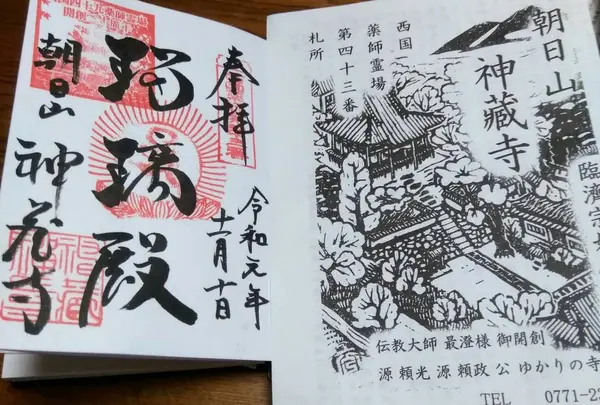 奉拝
令和元年
十一月十日
瑠璃殿
朝日山 神蔵寺
朝日山
神藏寺
西国
薬師霊場
第四十三番
札所
臨済宗
伝教大師 最澄様 御開創
源 頼光 源 頼政 公 ゆかりの寺
TEL 0771-2